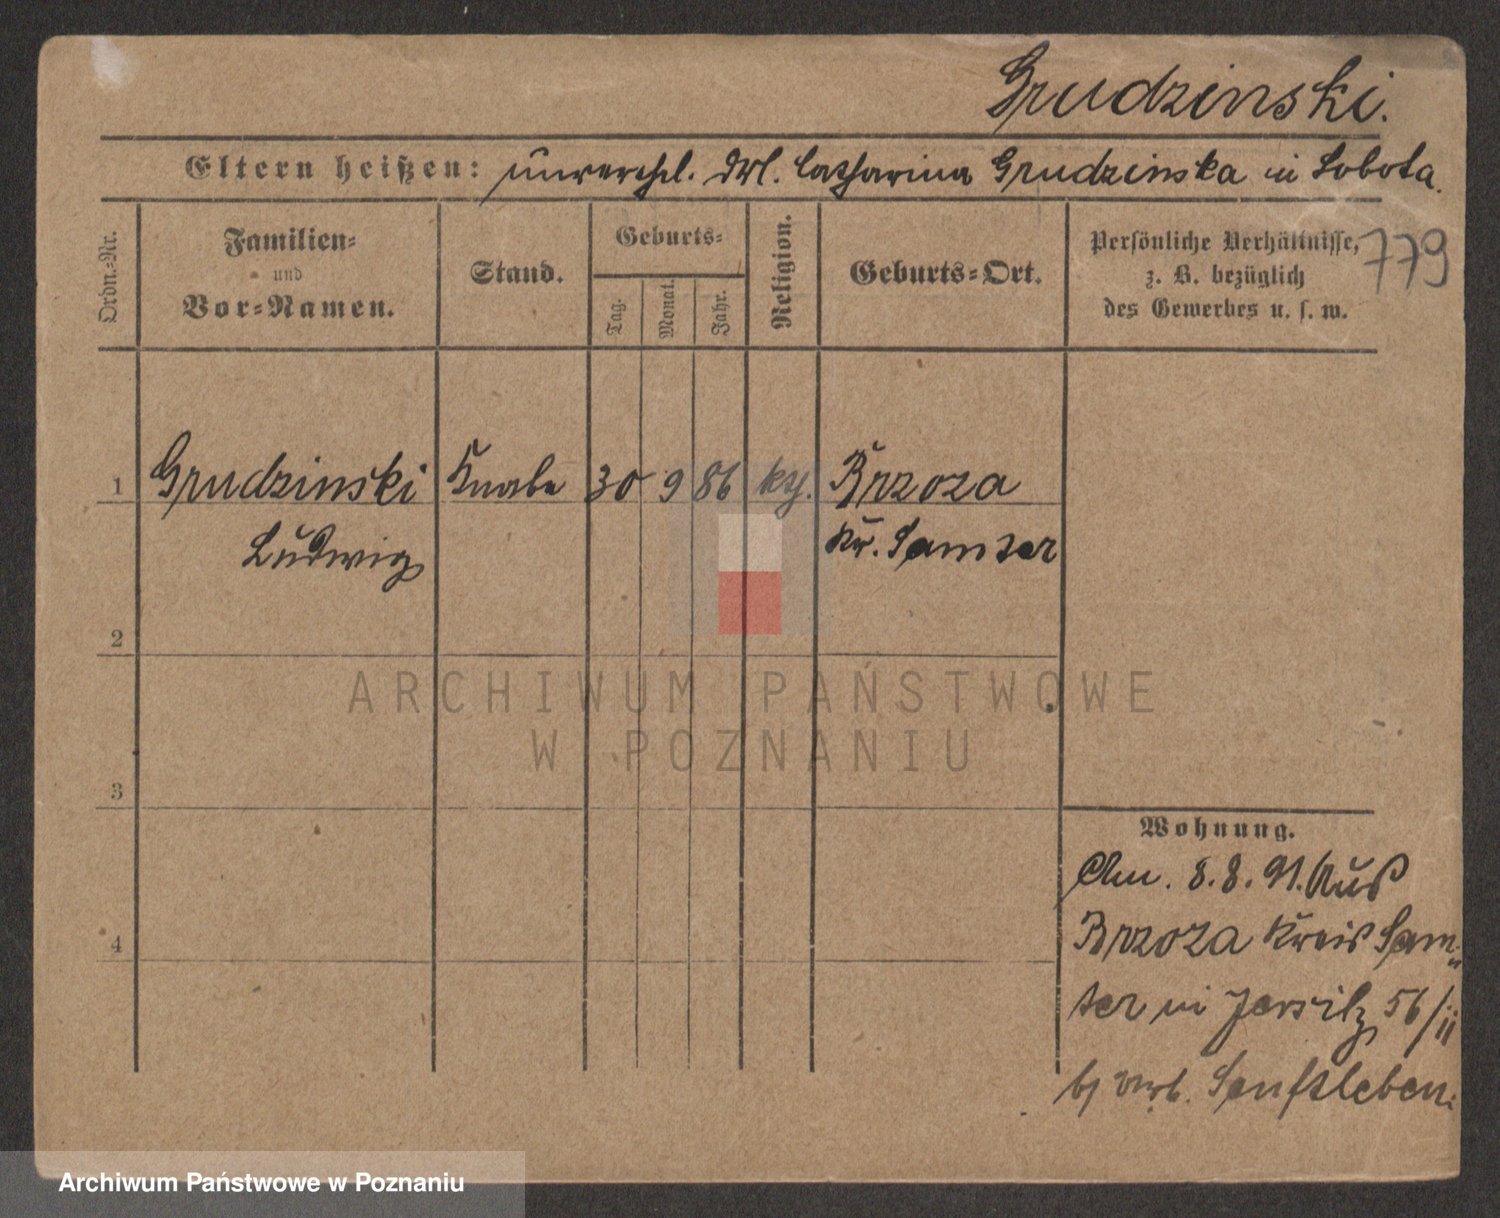 Grudzinski.
Eltern heißen: unverehel. Catharina Grudzinska in Sobota.
Ordn.-Nr.
Familien-
und
Vor-Namen.
Stand.
Geburts-
Tag.
Monat.
Jahr.
Religion.
Geburts-Ort.
Persönliche Verhältnisse,
z. B. bezüglich
des Gewerbes u. s. w.
779
1 Grudzinski Knabe 30 9 86 Brzoza
Ludwig Kr. Samter
2
3
4
Wohnung.
8.8.91. Aus
Brzoza Kreis Sam-
ter in Jersitz 56/II
b/ Senftleben.
ARCHIWUM PAŃSTWOWE
W POZNANIU
Archiwum Państwowe w Poznaniu